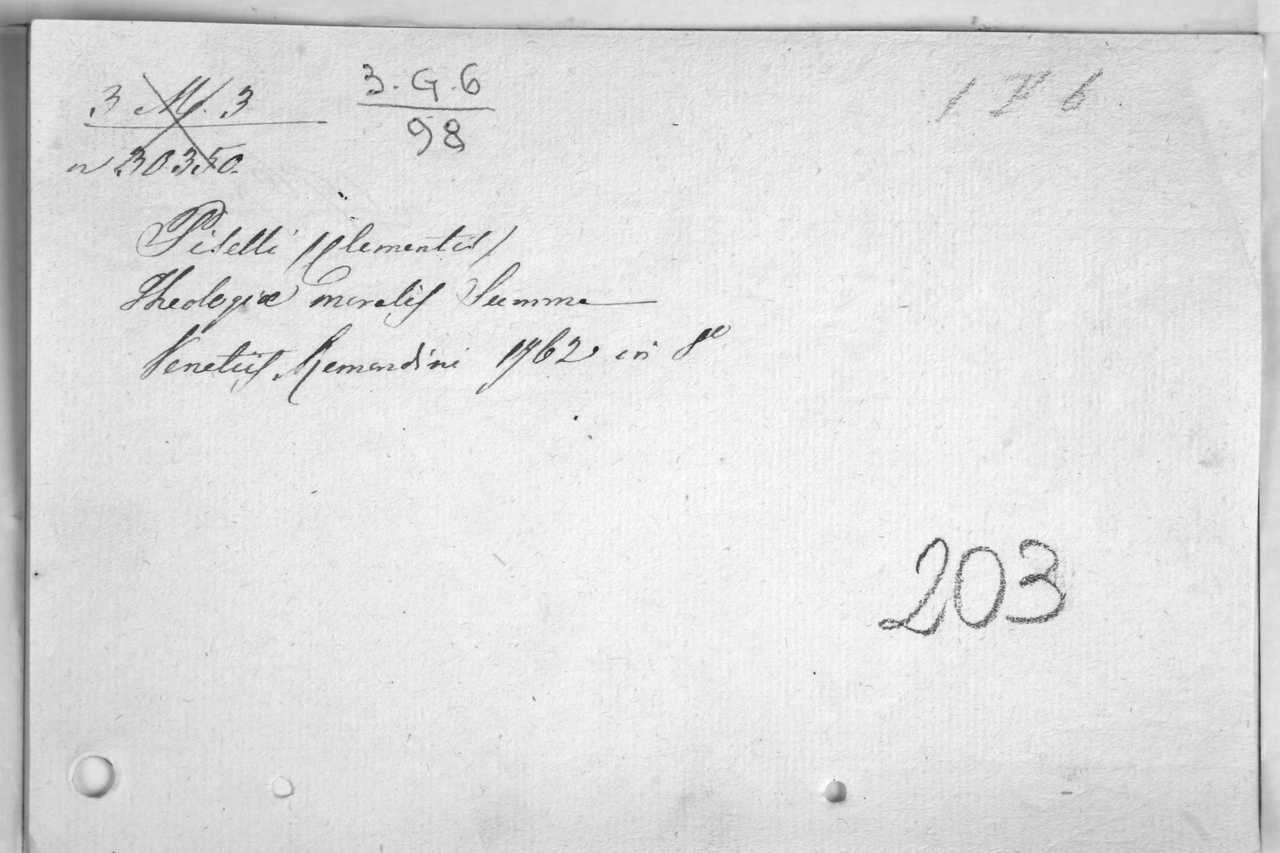 3 M. 3
n 30350.
3. G. 6
98
Piselli (Clementis)
Theologiæ moralis Summa
Venetiis, Remondini 1762 in 8º
203